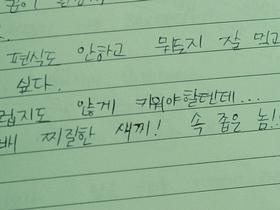 편식도 안하고 무럭지 잘 먹고
싶다.
럽지도 않게 키워야할텐데...
배 찌질한 새끼! 속 좁은 놈!!